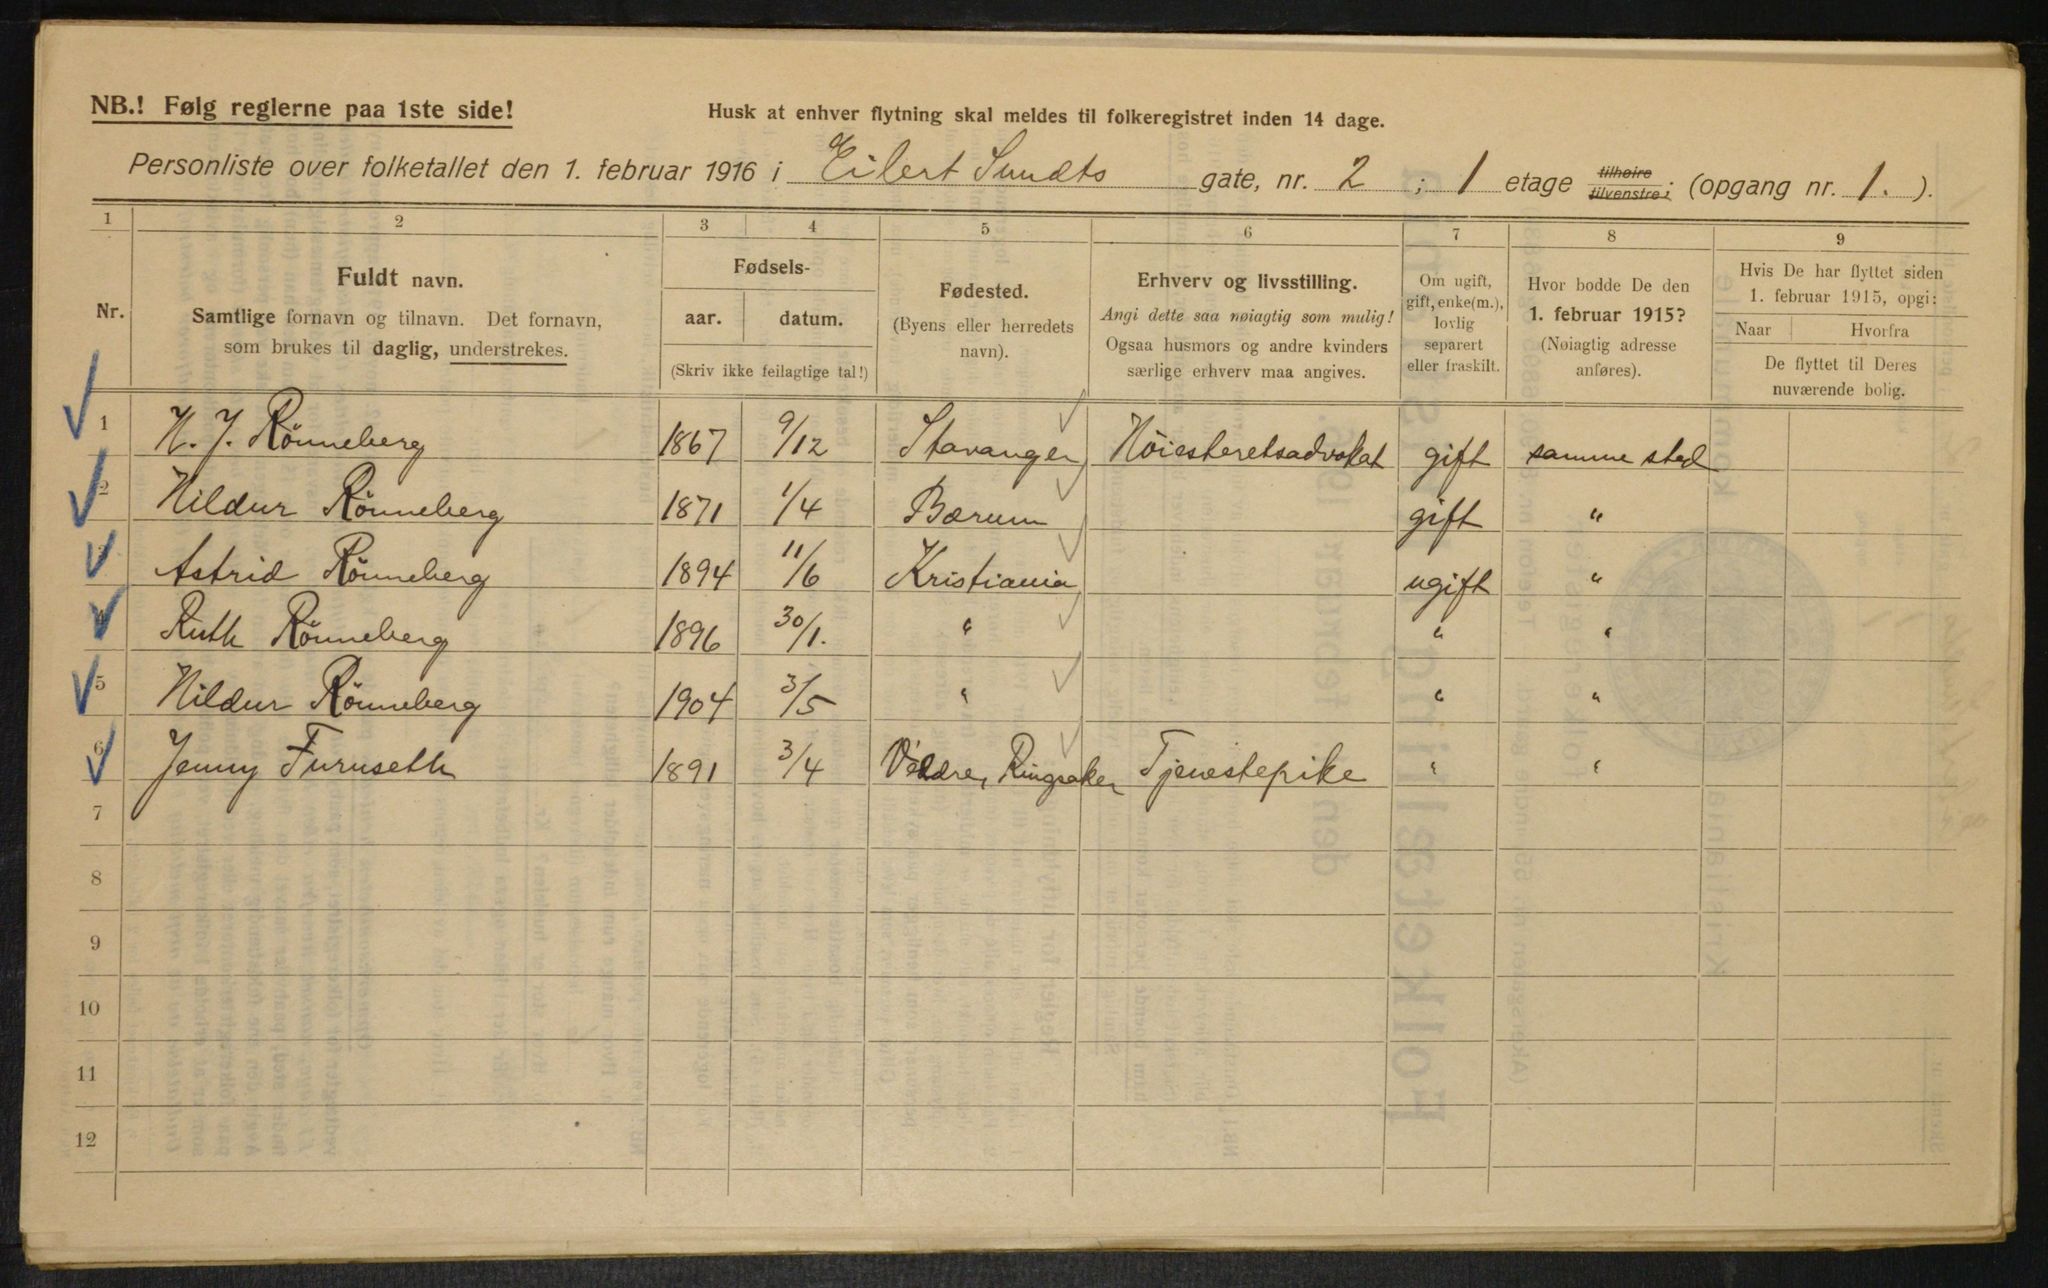 NB.! Følg reglerne paa 1ste side!
Husk at enhver flytning skal meldes til folkeregistret inden 14 dage.
Personliste over folketallet den 1. februar 1916 i Eilert Sundts gate, nr. 2 ; 1 etage tilhøire tilvenstre ; (opgang nr. 1. ).
1 2 3 4 5 6 7 8 9
Nr.
Fuldt navn.
Samtlige fornavn og tilnavn. Det fornavn,
som brukes til daglig, understrekes.
Fødsels-
aar. datum.
(Skriv ikke feilagtige tal!)
Fødested.
(Byens eller herredets
navn).
Erhverv og livsstilling.
Angi dette saa nøiagtig som mulig!
Ogsaa husmors og andre kvinders
særlige erhverv maa angives.
Om ugift,
gift, enke(m.),
lovlig
separert
eller fraskilt.
Hvor bodde De den
1. februar 1915?
(Nøiagtig adresse
anføres).
Hvis De har flyttet siden
1. februar 1915, opgi:
Naar Hvorfra
De flyttet til Deres
nuværende bolig.
1 H. J. Rönneberg 1867 9/12 Stavanger Höiesteretsadvokat gift samme sted
2 Hildur Rönneberg 1871 1/4 Bærum gift "
3 Astrid Rönneberg 1894 11/6 Kristiania ugift "
4 Ruth Rönneberg 1896 30/1. " " "
5 Hildur Rönneberg 1904 3/5 " " "
6 Jenny Furuseth 1891 3/4 Veldre, Ringsaker Tjenestepike " "
7
8
9
10
11
12